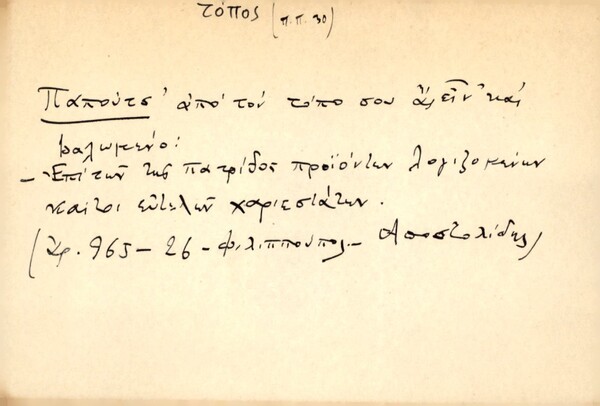 τόπος (π.π. 30)
Παπούτσ' ἀπό τόν τόπο σου ἄς εἶν' καί
βαλωμένο:
– Ἐπί τῶν τῆς πατρίδος προϊόντων λογιζομένων
καίτοι εὐτελῶν χαριεστάτων.
(Ἀρ. 965 – 26 – Φιλιππούπολ. – Ἀποστολίδης)